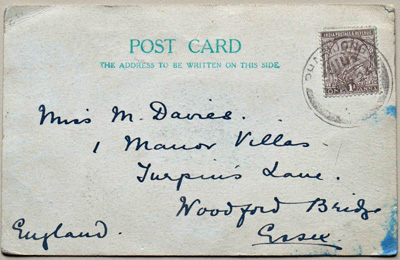 POST CARD
THE ADDRESS TO BE WRITTEN ON THIS SIDE.
INDIA POSTAGE & REVENUE
Miss M. Davies.
1 Manor Villas.
Turpin's Lane.
Woodford Bridge
Essex.
England.